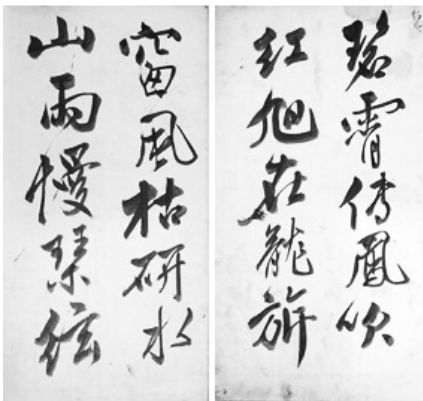 碧霄傳鳳吹
紅旭在龍旂
窗風枯研水
山雨慢琴絃